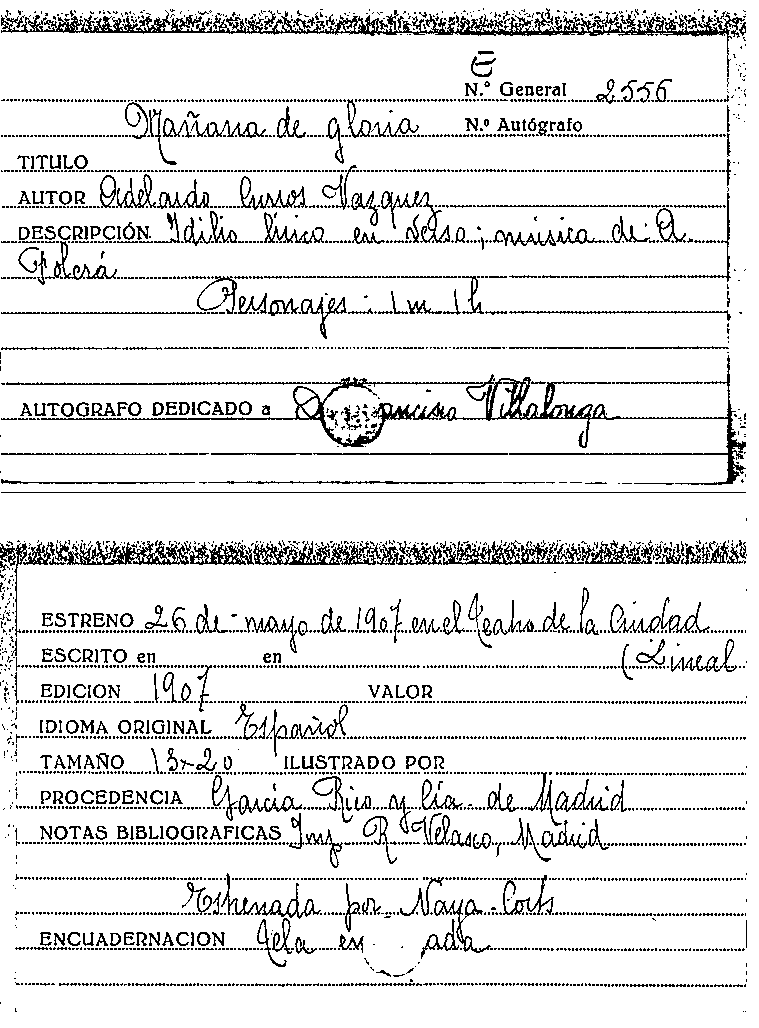 E
N.º General 2556
Mañana de gloria N.º Autógrafo
TITULO
AUTOR Adelardo Curros Vazquez
DESCRIPCIÓN Idilio lírico en verso; música de A.
Polcrá
Personajes: 1 m 1 h
AUTOGRAFO DEDICADO a Villalonga
ESTRENO 26 de mayo de 1907 en el Teatro de la Ciudad
ESCRITO en en (Lineal
EDICION 1907 VALOR
IDIOMA ORIGINAL Español
TAMAÑO 13-20 ILUSTRADO POR
PROCEDENCIA García Rico y Cía. de Madrid
NOTAS BIBLIOGRAFICAS Imp. R Velasco, Madrid
Estrenada por Naya-Corts
ENCUADERNACION Tela